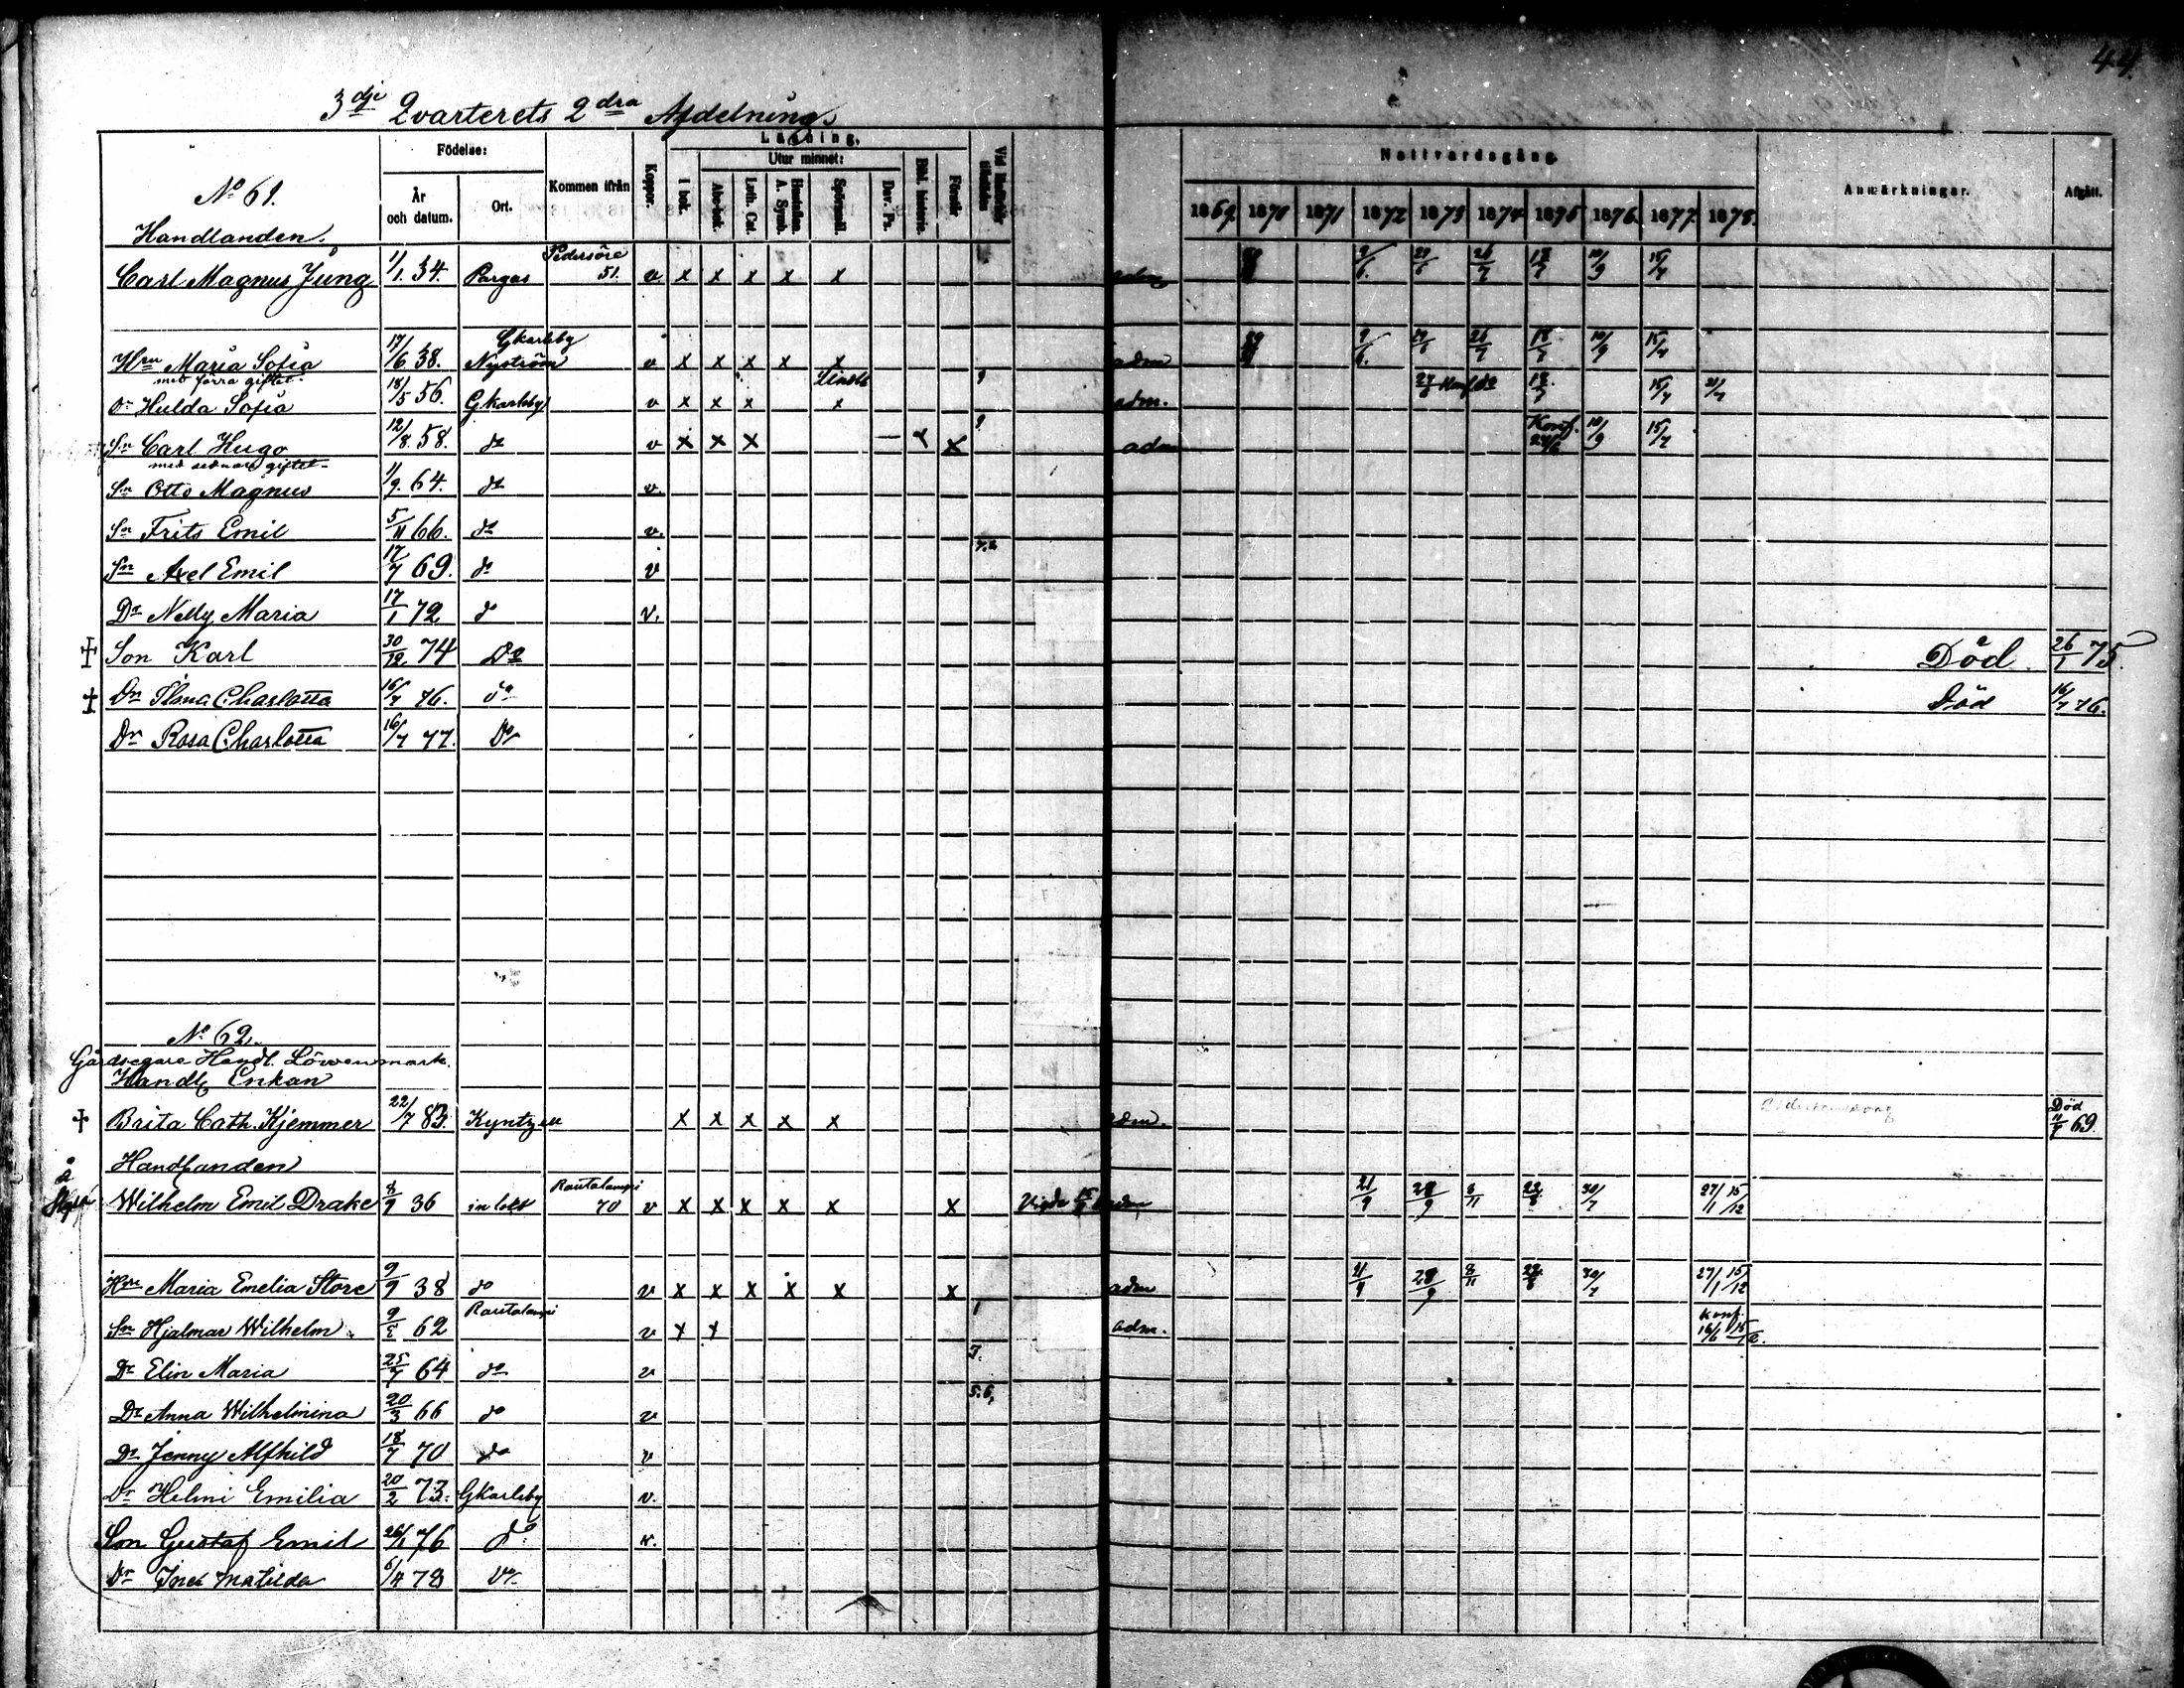 44.
3dje Qvarterets 2dra Afdelning.
Födelse: Läsning. Nattvardsgång.
Utur minnet:
År och datum. Ort. Kommen ifrån Koppor. I bok. Abc-bok. Luth. Cat. Hustaflan. A. Symb. Spörsmål. Dav. Ps. Bibl. historie. Förstår 1869. 1870 1871 1872 1873 1874 1875 1876. 1877. 1878. Anmärkningar. Afgått.
No 61.
Handlanden.
Carl Magnus Jung 1/1. 34. Pargas Pedersöre 51. v. x x x x x adm 9/6. 10/9 15/7
Gkarleby
Hru Maria Sofia 17/6. 38. Nyström v x x x x x adm 9/6. 10/9 15/7
med förra giftet.
Dr Hulda Sofia 18/5 56. Gkarleby v x x x x adm. 15/7 21/7
Sn Carl Hugo 12/8. 58. do v x x x — x x adm Konf. 10/9 15/7
med sednare giftet
Sn Otto Magnus 1/9. 64. do v.
Sn Frits Emil 5/11 66. do v.
Sn Axel Emil 17/7 69. do v
Dr Nelly Maria 17/1 72 do v.
Son Karl 30/12 74 Do Död. 26/1 75.
Dr Charlotta 16/7 76. do Död 16/7 76.
Dr Rosa Charlotta 16/7 77. Do
No 62.
Gårdsegare Handl. Löwenmark.
Handl. Enkan
Brita Cath. Kjemmer 22/7 83. x x x x x adm. Död 11/9 69.
Handlanden
Wilhelm Emil Drake 8/9 36 in loco Rautalampi 70 v x x x x x x Vigde adm 21/9 28/9 8/11 30/7 27/1 15/12
Hru Maria Emelia Store 9/9 38 do v x x x x x x adm 21/9 28/9 8/11 30/7 27/1 15/12
Rautalampi
Sn Hjalmar Wilhelm 62 v x x adm. Konf.
Dr Elin Maria 25/7 64 do v
Dr Anna Wilhelmina 20/3 66 do v 5.6.
Dr Jenny Alfhild 18/7 70 do v
Dr Helmi Emilia 20/2 73. GKarleby v.
Son Gustaf Emil 26/1 76 do v.
Dr Ines Matilda 6/4 78 Do